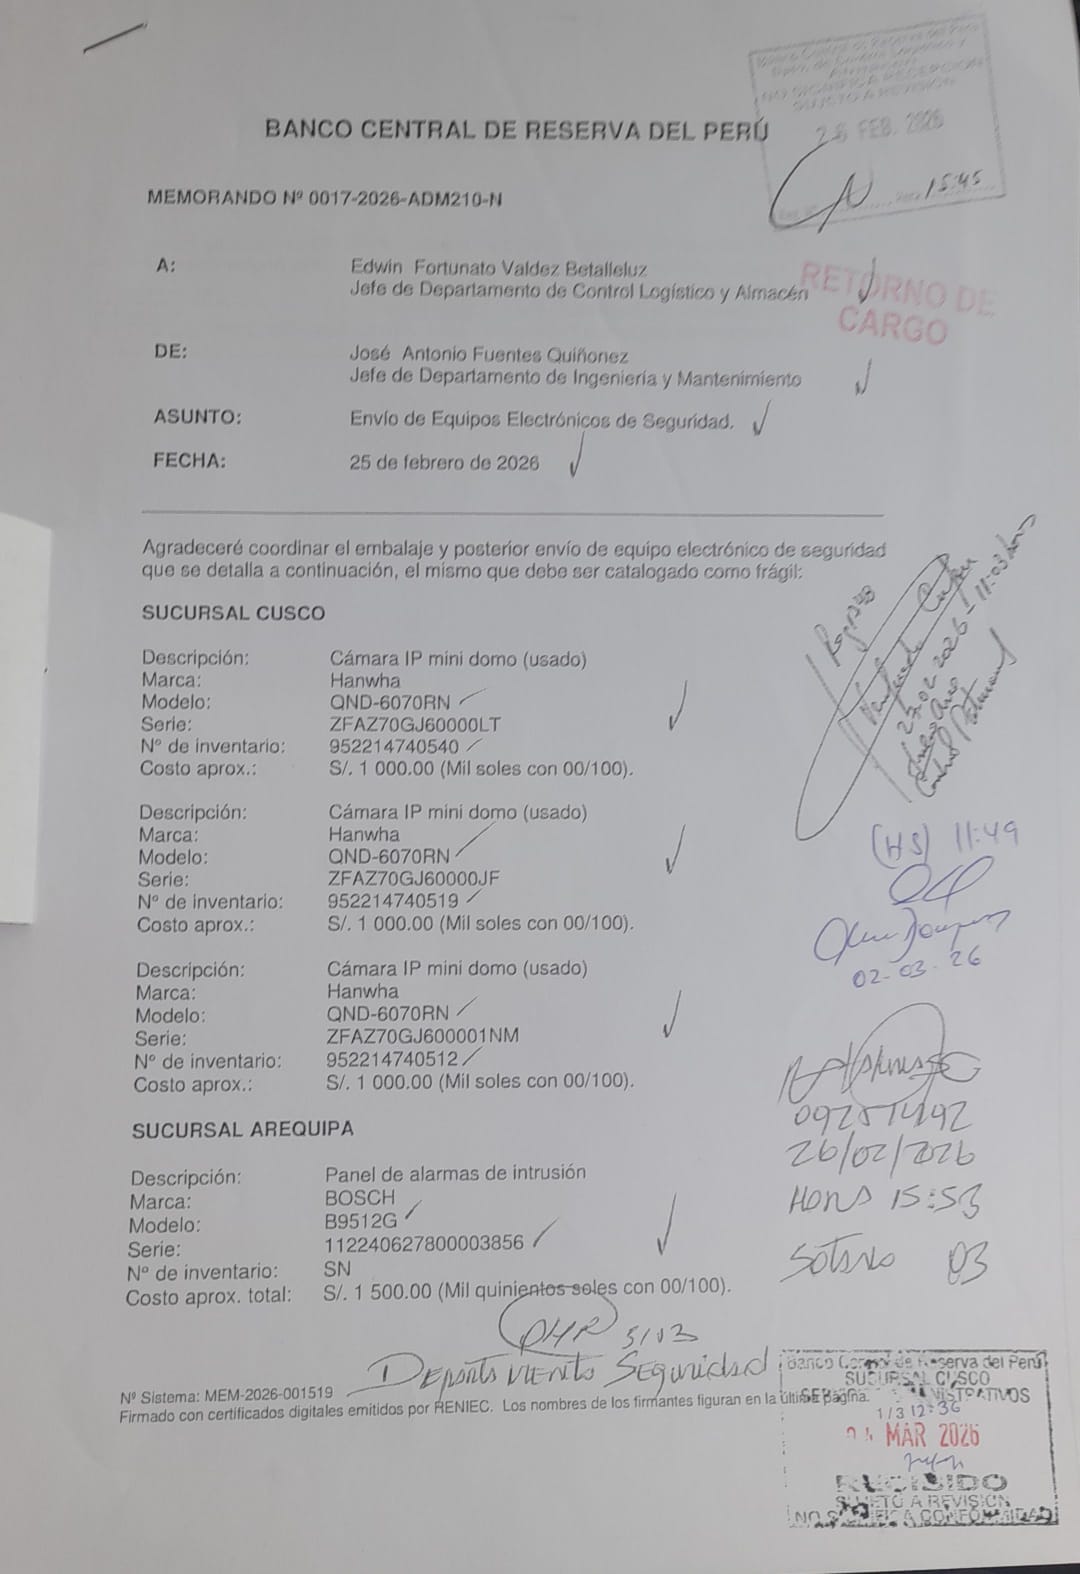 Banco Central de Reserva del Perú
NO SIGNIFICA RECEPCION
SUJETO A REVISION
26 FEB. 2026
15:45
BANCO CENTRAL DE RESERVA DEL PERÚ
MEMORANDO Nº 0017-2026-ADM210-N
A: Edwin Fortunato Valdez Betalleluz
Jefe de Departamento de Control Logístico y Almacén
RETORNO DE
CARGO
DE: José Antonio Fuentes Quiñonez
Jefe de Departamento de Ingeniería y Mantenimiento
ASUNTO: Envío de Equipos Electrónicos de Seguridad.
FECHA: 25 de febrero de 2026
Agradeceré coordinar el embalaje y posterior envío de equipo electrónico de seguridad
que se detalla a continuación, el mismo que debe ser catalogado como frágil:
SUCURSAL CUSCO
Descripción: Cámara IP mini domo (usado)
Marca: Hanwha
Modelo: QND-6070RN
Serie: ZFAZ70GJ60000LT
Nº de inventario: 952214740540
Costo aprox.: S/. 1 000.00 (Mil soles con 00/100).
Descripción: Cámara IP mini domo (usado)
Marca: Hanwha
Modelo: QND-6070RN
Serie: ZFAZ70GJ60000JF
Nº de inventario: 952214740519
Costo aprox.: S/. 1 000.00 (Mil soles con 00/100).
Descripción: Cámara IP mini domo (usado)
Marca: Hanwha
Modelo: QND-6070RN
Serie: ZFAZ70GJ600001NM
Nº de inventario: 952214740512
Costo aprox.: S/. 1 000.00 (Mil soles con 00/100).
SUCURSAL AREQUIPA
Descripción: Panel de alarmas de intrusión
Marca: BOSCH
Modelo: B9512G
Serie: 112240627800003856
Nº de inventario: SN
Costo aprox. total: S/. 1 500.00 (Mil quinientos soles con 00/100).
27.02.2026 - 11:03
(HS) 11:49
02-03-26
26/02/2026
Hora 15:53
Sótano 03
5/03
Departamento Seguridad
Nº Sistema: MEM-2026-001519
Firmado con certificados digitales emitidos por RENIEC. Los nombres de los firmantes figuran en la última página.
Banco Central de Reserva del Perú
SUCURSAL CUSCO
1/3 12:36
MAR 2026
RECIBIDO
SUJETO A REVISION
NO SIGNIFICA CONFORMIDAD